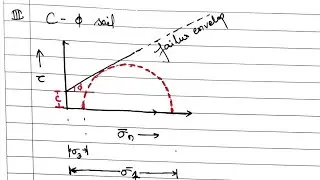 III C - φ soil
failure envelop
τ
φ
C
σ̄n
σ̄3
σ̄1